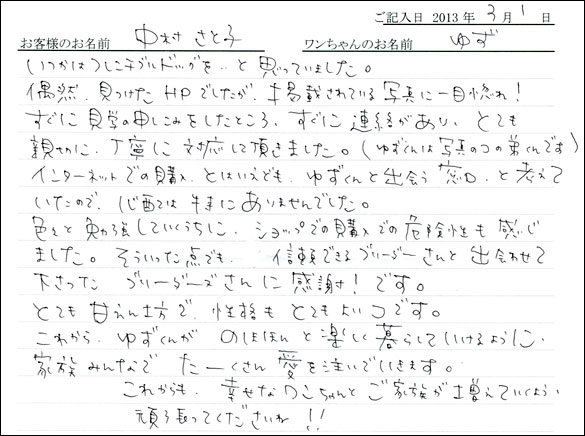 ご記入日 2013 年 3 月 1 日
お客様のお名前 中村 さと子 ワンちゃんのお名前 ゆず
いつかはフレンチブルドッグを‥と思っていました。
偶然、見つけたHPでしたが、掲載されている写真に一目惚れ!
すぐに見学の申しこみをしたところ、すぐに連絡があり、とても
親切に、丁寧に対応して頂きました。(ゆずくんは写真のコの弟くんです)
インターネットでの購入、とはいえども、ゆずくんと出会う窓口、と考えて
いたので、心配では特にありませんでした。
色々と勉強していくうちに、ショップでの購入での危険性も感じ
ました。そういった点でも、信頼できるブリーダーさんと出会わせて
下さった ブリーダーズさんに感謝!です。
とても甘えん坊で、性格もとてもよいコです。
これから、ゆずくんが のほほんと楽しく暮らしていけるように、
家族みんなで たーくさん愛を注いでいきます。
これからも、幸せなワンちゃんとご家族が増えていくよう、
頑張ってくださいね!!